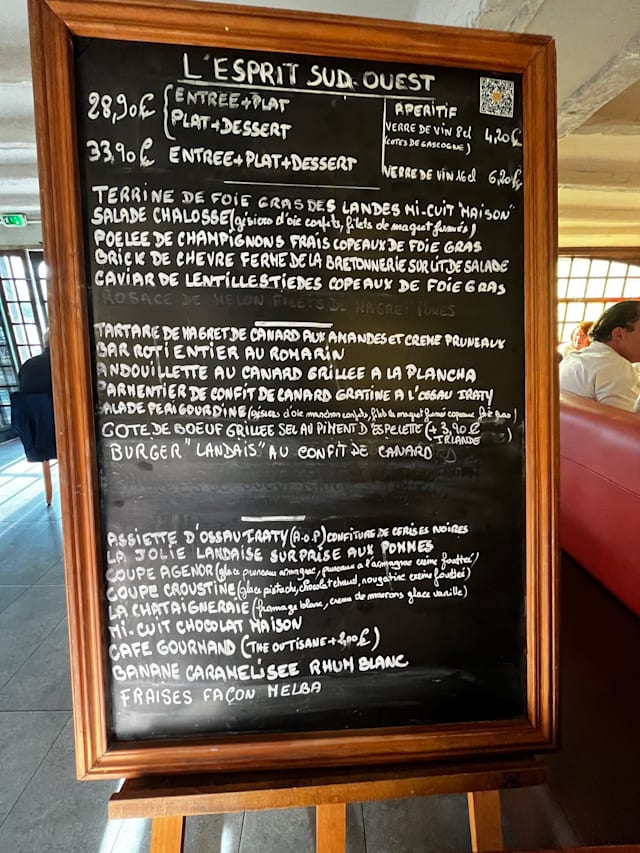 L'ESPRIT SUD-OUEST
28,90€ { ENTREE+PLAT
PLAT+DESSERT
33,90€ ENTREE+PLAT+DESSERT
APERITIF
VERRE DE VIN 8cl 4,20€
(COTES DE GASCOGNE)
VERRE DE VIN 16cl 6,20€
TERRINE DE FOIE GRAS DES LANDES MI-CUIT "MAISON"
SALADE CHALOSSE (gésiers d'oie confits, filets de magret fumés)
POELEE DE CHAMPIGNONS FRAIS COPEAUX DE FOIE GRAS
BRICK DE CHEVRE FERME DE LA BRETONNERIE SUR LIT DE SALADE
CAVIAR DE LENTILLES TIEDES COPEAUX DE FOIE GRAS
ROSACE DE MELON FILETS DE MAGRET FUMES
TARTARE DE MAGRET DE CANARD AUX AMANDES ET CREME PRUNEAUX
BAR ROTI ENTIER AU ROMARIN
ANDOUILLETTE AU CANARD GRILLEE A LA PLANCHA
PARMENTIER DE CONFIT DE CANARD GRATINE A L'OSSAU IRATY
SALADE PERIGOURDINE (gésiers d'oie confits, filets de magret fumé copeaux foie gras)
COTE DE BOEUF GRILLEE SEL AU PIMENT D'ESPELETTE (+3,90€
IRLANDE )
BURGER "LANDAIS" AU CONFIT DE CANARD
ASSIETTE D'OSSAU IRATY (A.O.P) CONFITURE DE CERISES NOIRES
LA JOLIE LANDAISE SURPRISE AUX POMMES
COUPE AGENOR (glace pruneau armagnac, pruneaux a l'armagnac crème fouettée)
COUPE CROUSTINE (glace pistache, chocolat chaud, nougatine crème fouettée)
LA CHATAIGNERAIE (fromage blanc, creme de marrons glace vanille)
MI-CUIT CHOCOLAT MAISON
CAFE GOURMAND (THE OU TISANE +2,00€)
BANANE CARAMELISEE RHUM BLANC
FRAISES FAÇON MELBA